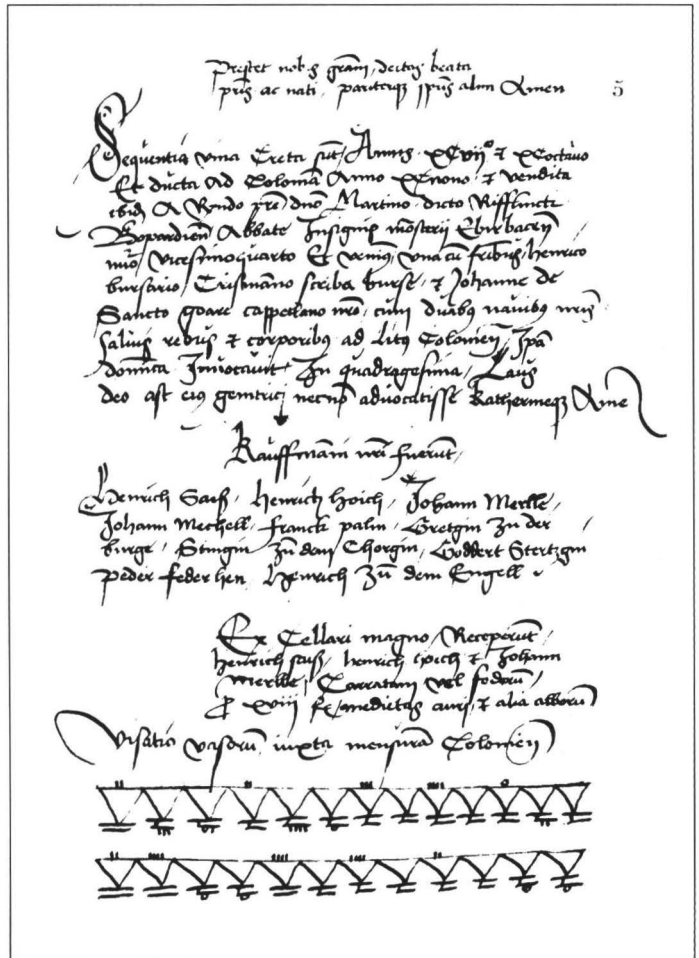 Prestet nobis gram, deitas beata
pris ac nati, pariterqz spus almi Amen 5
Sequentia vina Creta sut, Annis xCvijo & xCoctavo
Et ducta ad Coloniā Anno xCnono, & vendita
ibid A Rndo pre dno Martino dicto Rifflinck
Bopardien Abbate Insignis mosterij Eberbaceñ
Et venimus vna cū fribus, henrico
bursario, Cristiano scriba burse, & Johanne de
Sancto goare cappellano nro, cum duabus navibus nris
salvis rebus & corporibus ad litus Colonien, Ipa
domica Invocavit, In quadragesima, Laus
deo ast eius genitrici necno advocatisse Katherineqz Ame
Kauffmani nri fuerut,
Henrich Saeß, Henrich hoich, Johann Merlle,
Johann Mechell, Franck palm, Gretgin Zu der
burge, Stingin Zu dem Chorgin, Goddert Stertzgin
Peder federhen, Henrich Zu dem Engell
Ex Cellari magno, Receperut
henrich, henrich & Johann
Merlle, Carratam vel foderu,
p xviij fl, medietas auri, & alia alborū
Visatio vasorū iuxta mensurā Colonieñ